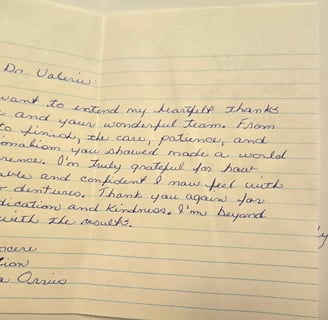 Dr. Valeriu:
want to extend my heartfelt thanks
and your wonderful team. From
to finish, the care, patience, and
onalism you showed made a world
rence. I'm truly grateful for how
able and confident I now feel with
dentures. Thank you again for
dication and kindness. I'm beyond
with the results.
ncere
tion